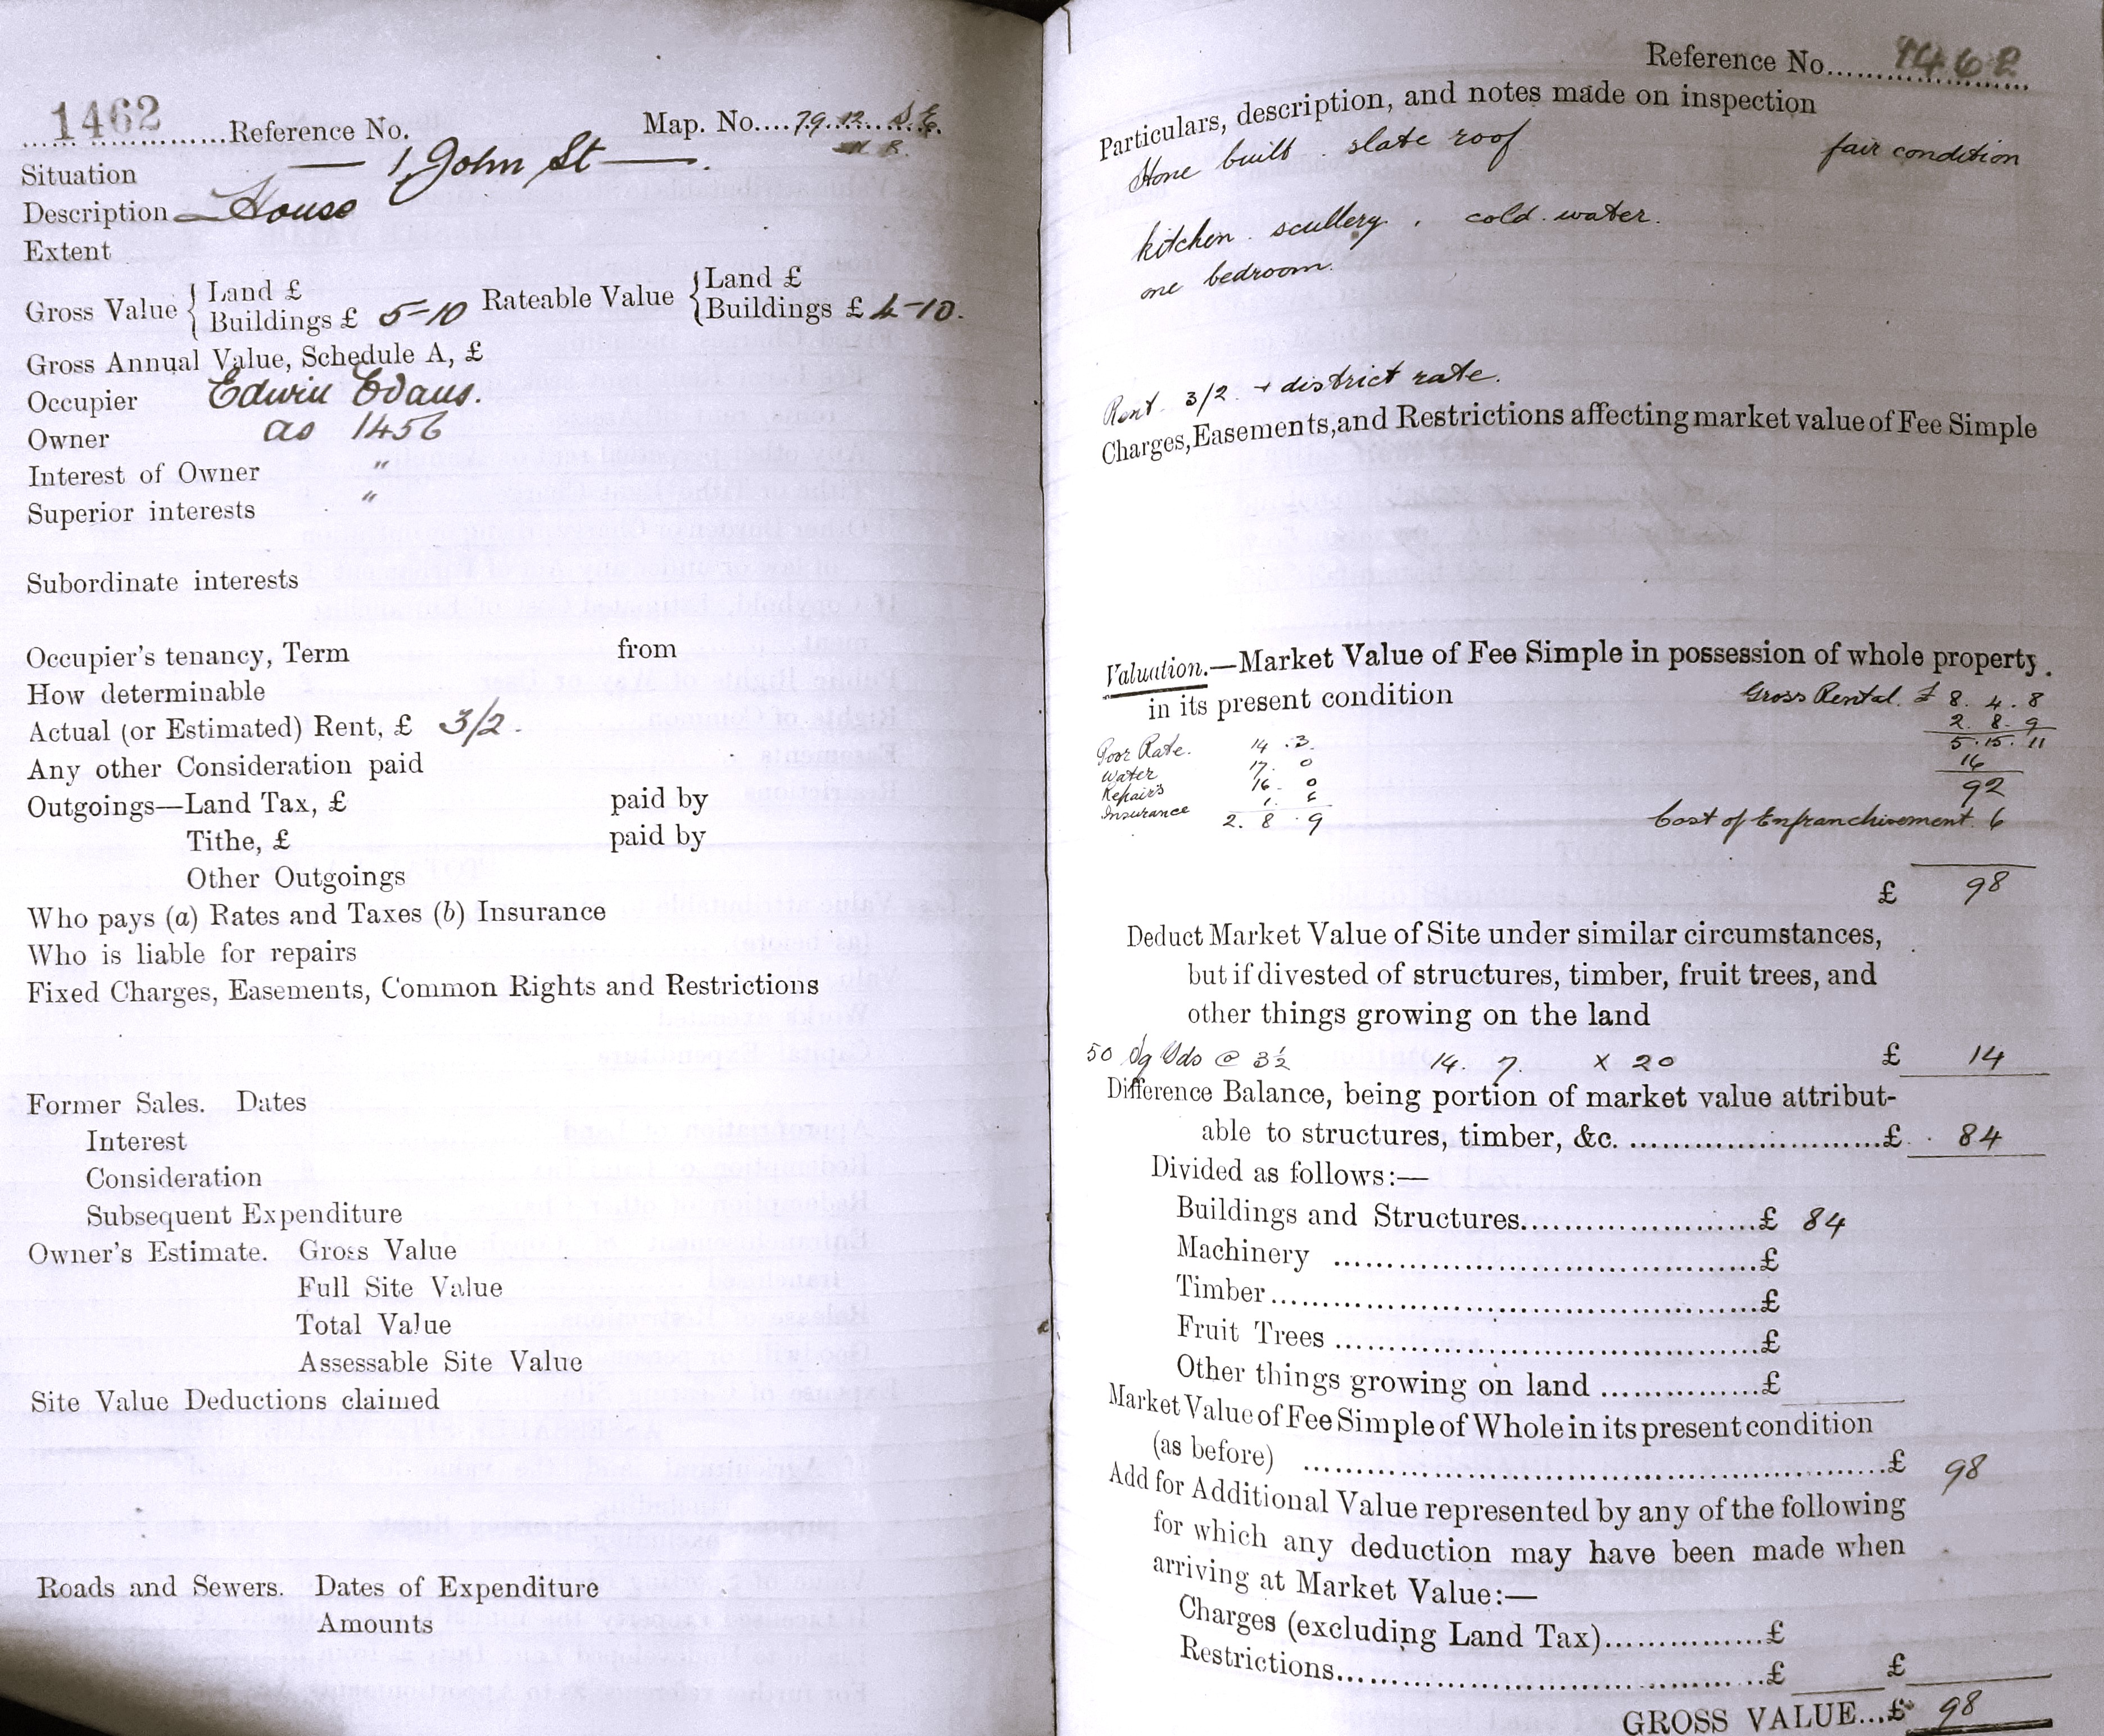 1462 Reference No. Map. No. 79.12. S.E.
Situation — 1, John St —.
Description House
Extent
Gross Value { Land £ Rateable Value { Land £
Buildings £ 5-10 Buildings £ 4-10.
Gross Annual Value, Schedule A, £
Occupier Edwin Evans.
Owner as 1456
Interest of Owner "
Superior interests "
Subordinate interests
Occupier's tenancy, Term from
How determinable
Actual (or Estimated) Rent, £ 3/2.
Any other Consideration paid
Outgoings—Land Tax, £ paid by
Tithe, £ paid by
Other Outgoings
Who pays (a) Rates and Taxes (b) Insurance
Who is liable for repairs
Fixed Charges, Easements, Common Rights and Restrictions
Former Sales. Dates
Interest
Consideration
Subsequent Expenditure
Owner's Estimate. Gross Value
Full Site Value
Total Value
Assessable Site Value
Site Value Deductions claimed
Roads and Sewers. Dates of Expenditure
Amounts
Reference No. 1462
Particulars, description, and notes made on inspection
Stone built. slate roof fair condition
kitchen. scullery. cold water.
one bedroom.
Rent 3/2 + district rate.
Charges, Easements, and Restrictions affecting market value of Fee Simple
Valuation.—Market Value of Fee Simple in possession of whole property
in its present condition Gross Rental. £ 8. 4. 8
2. 8. 9
Poor Rate. 14. 3. 5. 15. 11
Water 17. 0 16
Repairs 16. 0 92
Insurance 1. 6
2. 8. 9 Cost of Enfranchisement. 6
£ 98
Deduct Market Value of Site under similar circumstances,
but if divested of structures, timber, fruit trees, and
other things growing on the land
50 Sq Yds @ 3½ 14. 7. x 20 £ 14
Difference Balance, being portion of market value attribut-
able to structures, timber, &c. £ 84
Divided as follows:—
Buildings and Structures £ 84
Machinery £
Timber £
Fruit Trees £
Other things growing on land £
Market Value of Fee Simple of Whole in its present condition
(as before) £ 98
Add for Additional Value represented by any of the following
for which any deduction may have been made when
arriving at Market Value:—
Charges (excluding Land Tax) £
Restrictions £ £
GROSS VALUE...£ 98